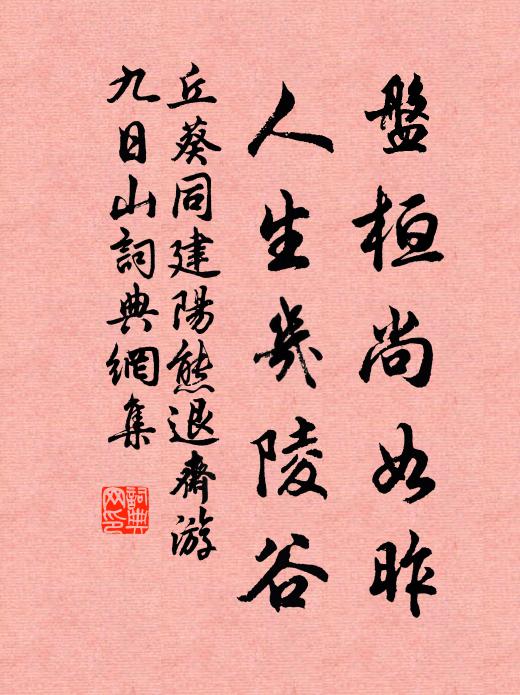 盤桓尚如昨
人生幾陵谷
丘葵同建陽熊退齋游
九日山詞典網集
詞典
网印